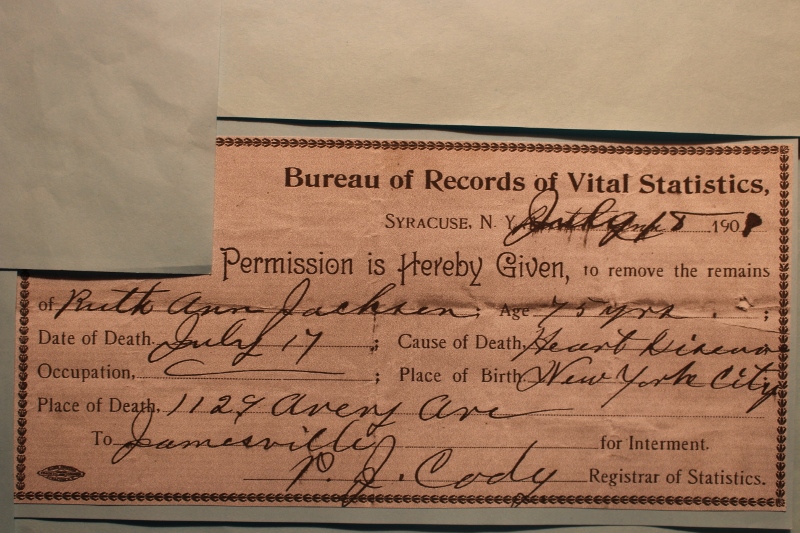 Bureau of Records of Vital Statistics,
SYRACUSE, N. Y. July 18 1901
Permission is Hereby Given, to remove the remains
of Ruth Ann Jackson, Age 75 yrs. ;
Date of Death, July 17 ; Cause of Death, Heart Disease
Occupation, ; Place of Birth New York City
Place of Death, 1129 Avery Ave
To Jamesville for Interment.
P. J. Cody Registrar of Statistics.